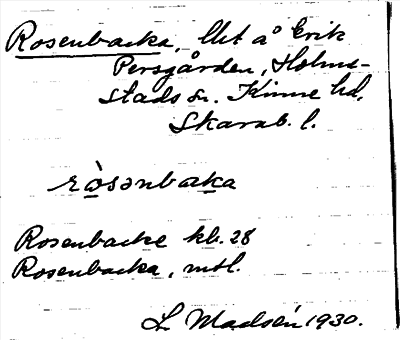 Rosenbacka, lht å Erik
Persgården, Holme-
stads sn. Kinne hd,
Skarab. l.
ròsənbaka
Rosenbacke kb. 28
Rosenbacka, mtl.
L. Madsén 1930.